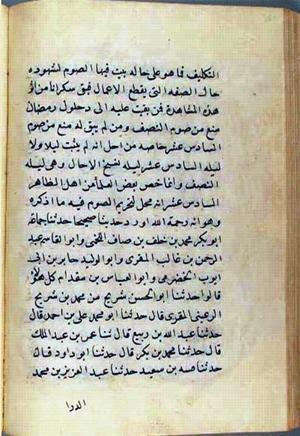 التكليف فما هو على حاله يبيت فيها الصوم لشهوده
حال الصفه التى يقطع الاعمال فبق سكرانا من اثر
هذه المشاهدة فمن بقيت عليه الى دخول رمضان
منع من صوم النصف ومن لم يبق له منع من صوم
السادس عشر خاصه من اجل انه لم يثبت ليلا ولا
ليله السادس عشر ليله نسخ الاجال وهى ليله
النصف وانما خص بعض العلما من اهل الظاهر
السادس عشر انه محل لتحريم الصوم فيه ما اذكره
وهو انه رحمة الله اورد حديثا صحيحا حدثنا جماعة
ابو بكر محمد بن خلف بن صاف اللخمى وابو القاسم عبد
الرحمن بن غالب المقرى وابو الوليد جابر بن ابى
ايوب الحضرمى وابو العباس بن مقدام كل هؤلا
قالوا حدثنا ابو الحسن شريح بن محمد بن شريح
الرعينى المقرى قال حدثنا ابو محمد على بن احمد قال
حدثنا عبد الله بن ربيع قال ثنا عمر بن عبد الملك
قال حدثنا محمد بن بكر قال حدثنا ابو داود قال
حدثنا قتيبه بن سعيد حدثنا عبد العزيز بن محمد
الدوا